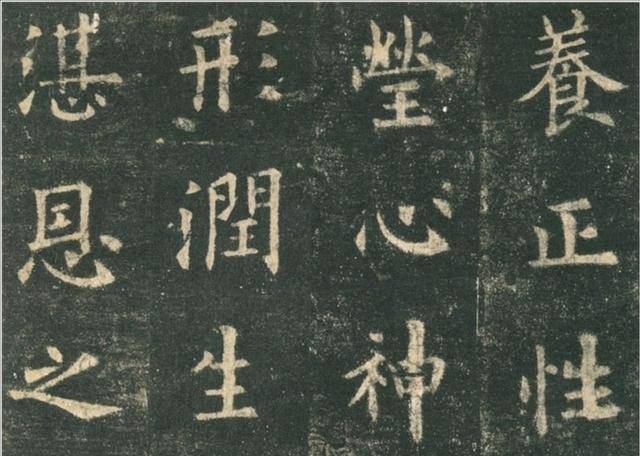 養正性
瑩心神
形潤生
湛恩之